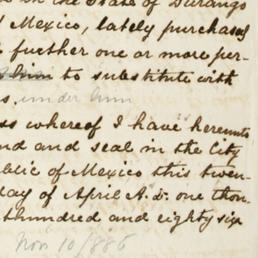 d in the State of Durango
f Mexico, lately purchased
to further one or more per-
him to substitute with
s, under him
ss whereof I have hereunto
nd and seal in the City
blic of Mexico this twen-
day of April A.D. one thou-
t hundred and eighty six
Nov 10/886